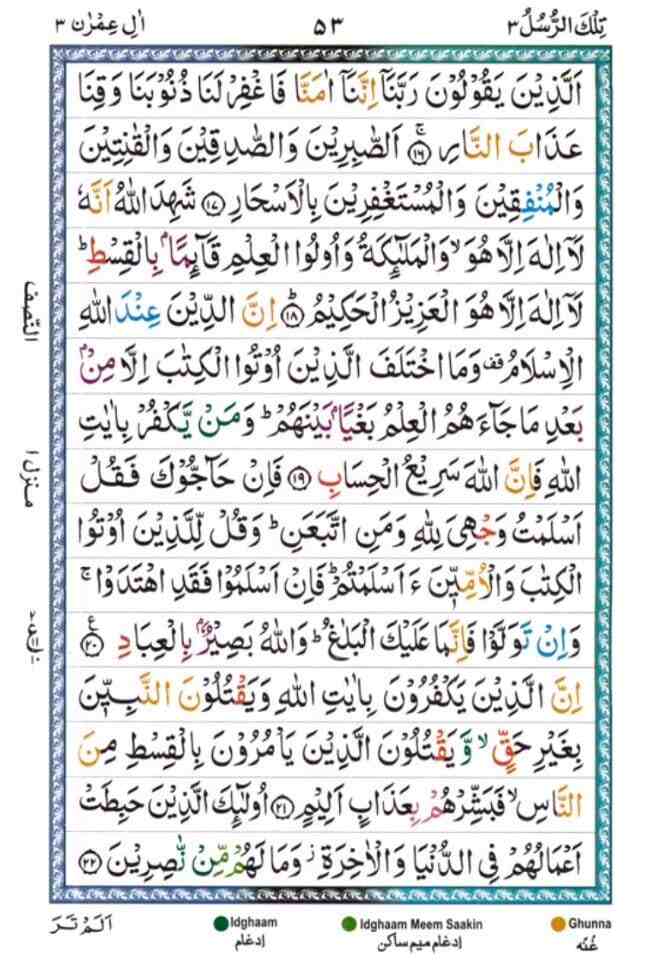 تِلْكَ الرُّسُلُ ۳ ۵۳ اٰلِ عِمْرٰن ۳
اَلَّذِیْنَ یَقُوْلُوْنَ رَبَّنَاۤ اِنَّنَاۤ اٰمَنَّا فَاغْفِرْ لَنَا ذُنُوْبَنَا وَقِنَا
عَذَابَ النَّارِ ۚ﴿۱۶﴾ اَلصّٰبِرِیْنَ وَالصّٰدِقِیْنَ وَالْقٰنِتِیْنَ
وَالْمُنْفِقِیْنَ وَالْمُسْتَغْفِرِیْنَ بِالْاَسْحَارِ ﴿۱۷﴾ شَهِدَ اللّٰهُ اَنَّهٗ
لَاۤ اِلٰهَ اِلَّا هُوَ ۙ وَالْمَلٰٓئِكَةُ وَاُولُوا الْعِلْمِ قَآئِمًۢا بِالْقِسْطِ ؕ
لَاۤ اِلٰهَ اِلَّا هُوَ الْعَزِیْزُ الْحَكِیْمُ ؕ﴿۱۸﴾ اِنَّ الدِّیْنَ عِنْدَ اللّٰهِ
الْاِسْلَامُ ۫ وَمَا اخْتَلَفَ الَّذِیْنَ اُوْتُوا الْكِتٰبَ اِلَّا مِنْۢ
بَعْدِ مَا جَآءَهُمُ الْعِلْمُ بَغْیًۢا بَیْنَهُمْ ؕ وَمَنْ یَّكْفُرْ بِاٰیٰتِ
اللّٰهِ فَاِنَّ اللّٰهَ سَرِیْعُ الْحِسَابِ ﴿۱۹﴾ فَاِنْ حَآجُّوْكَ فَقُلْ
اَسْلَمْتُ وَجْهِیَ لِلّٰهِ وَمَنِ اتَّبَعَنِ ؕ وَقُلْ لِّلَّذِیْنَ اُوْتُوا
الْكِتٰبَ وَالْاُمِّیّٖنَ ءَاَسْلَمْتُمْ ؕ فَاِنْ اَسْلَمُوْا فَقَدِ اهْتَدَوْا ۚ
وَاِنْ تَوَلَّوْا فَاِنَّمَا عَلَیْكَ الْبَلٰغُ ؕ وَاللّٰهُ بَصِیْرٌۢ بِالْعِبَادِ ﴿۲۰﴾
اِنَّ الَّذِیْنَ یَكْفُرُوْنَ بِاٰیٰتِ اللّٰهِ وَیَقْتُلُوْنَ النَّبِیّٖنَ
بِغَیْرِ حَقٍّ ۙ وَّیَقْتُلُوْنَ الَّذِیْنَ یَاْمُرُوْنَ بِالْقِسْطِ مِنَ
النَّاسِ ۙ فَبَشِّرْهُمْ بِعَذَابٍ اَلِیْمٍ ﴿۲۱﴾ اُولٰٓئِكَ الَّذِیْنَ حَبِطَتْ
اَعْمَالُهُمْ فِی الدُّنْیَا وَالْاٰخِرَةِ ؗ وَمَا لَهُمْ مِّنْ نّٰصِرِیْنَ ﴿۲۲﴾
النّصف
منزل ۱
اَلَمْ تَرَ
Idghaam
ادغام
Idghaam Meem Saakin
ادغام میم ساکن
Ghunna
غُنّه